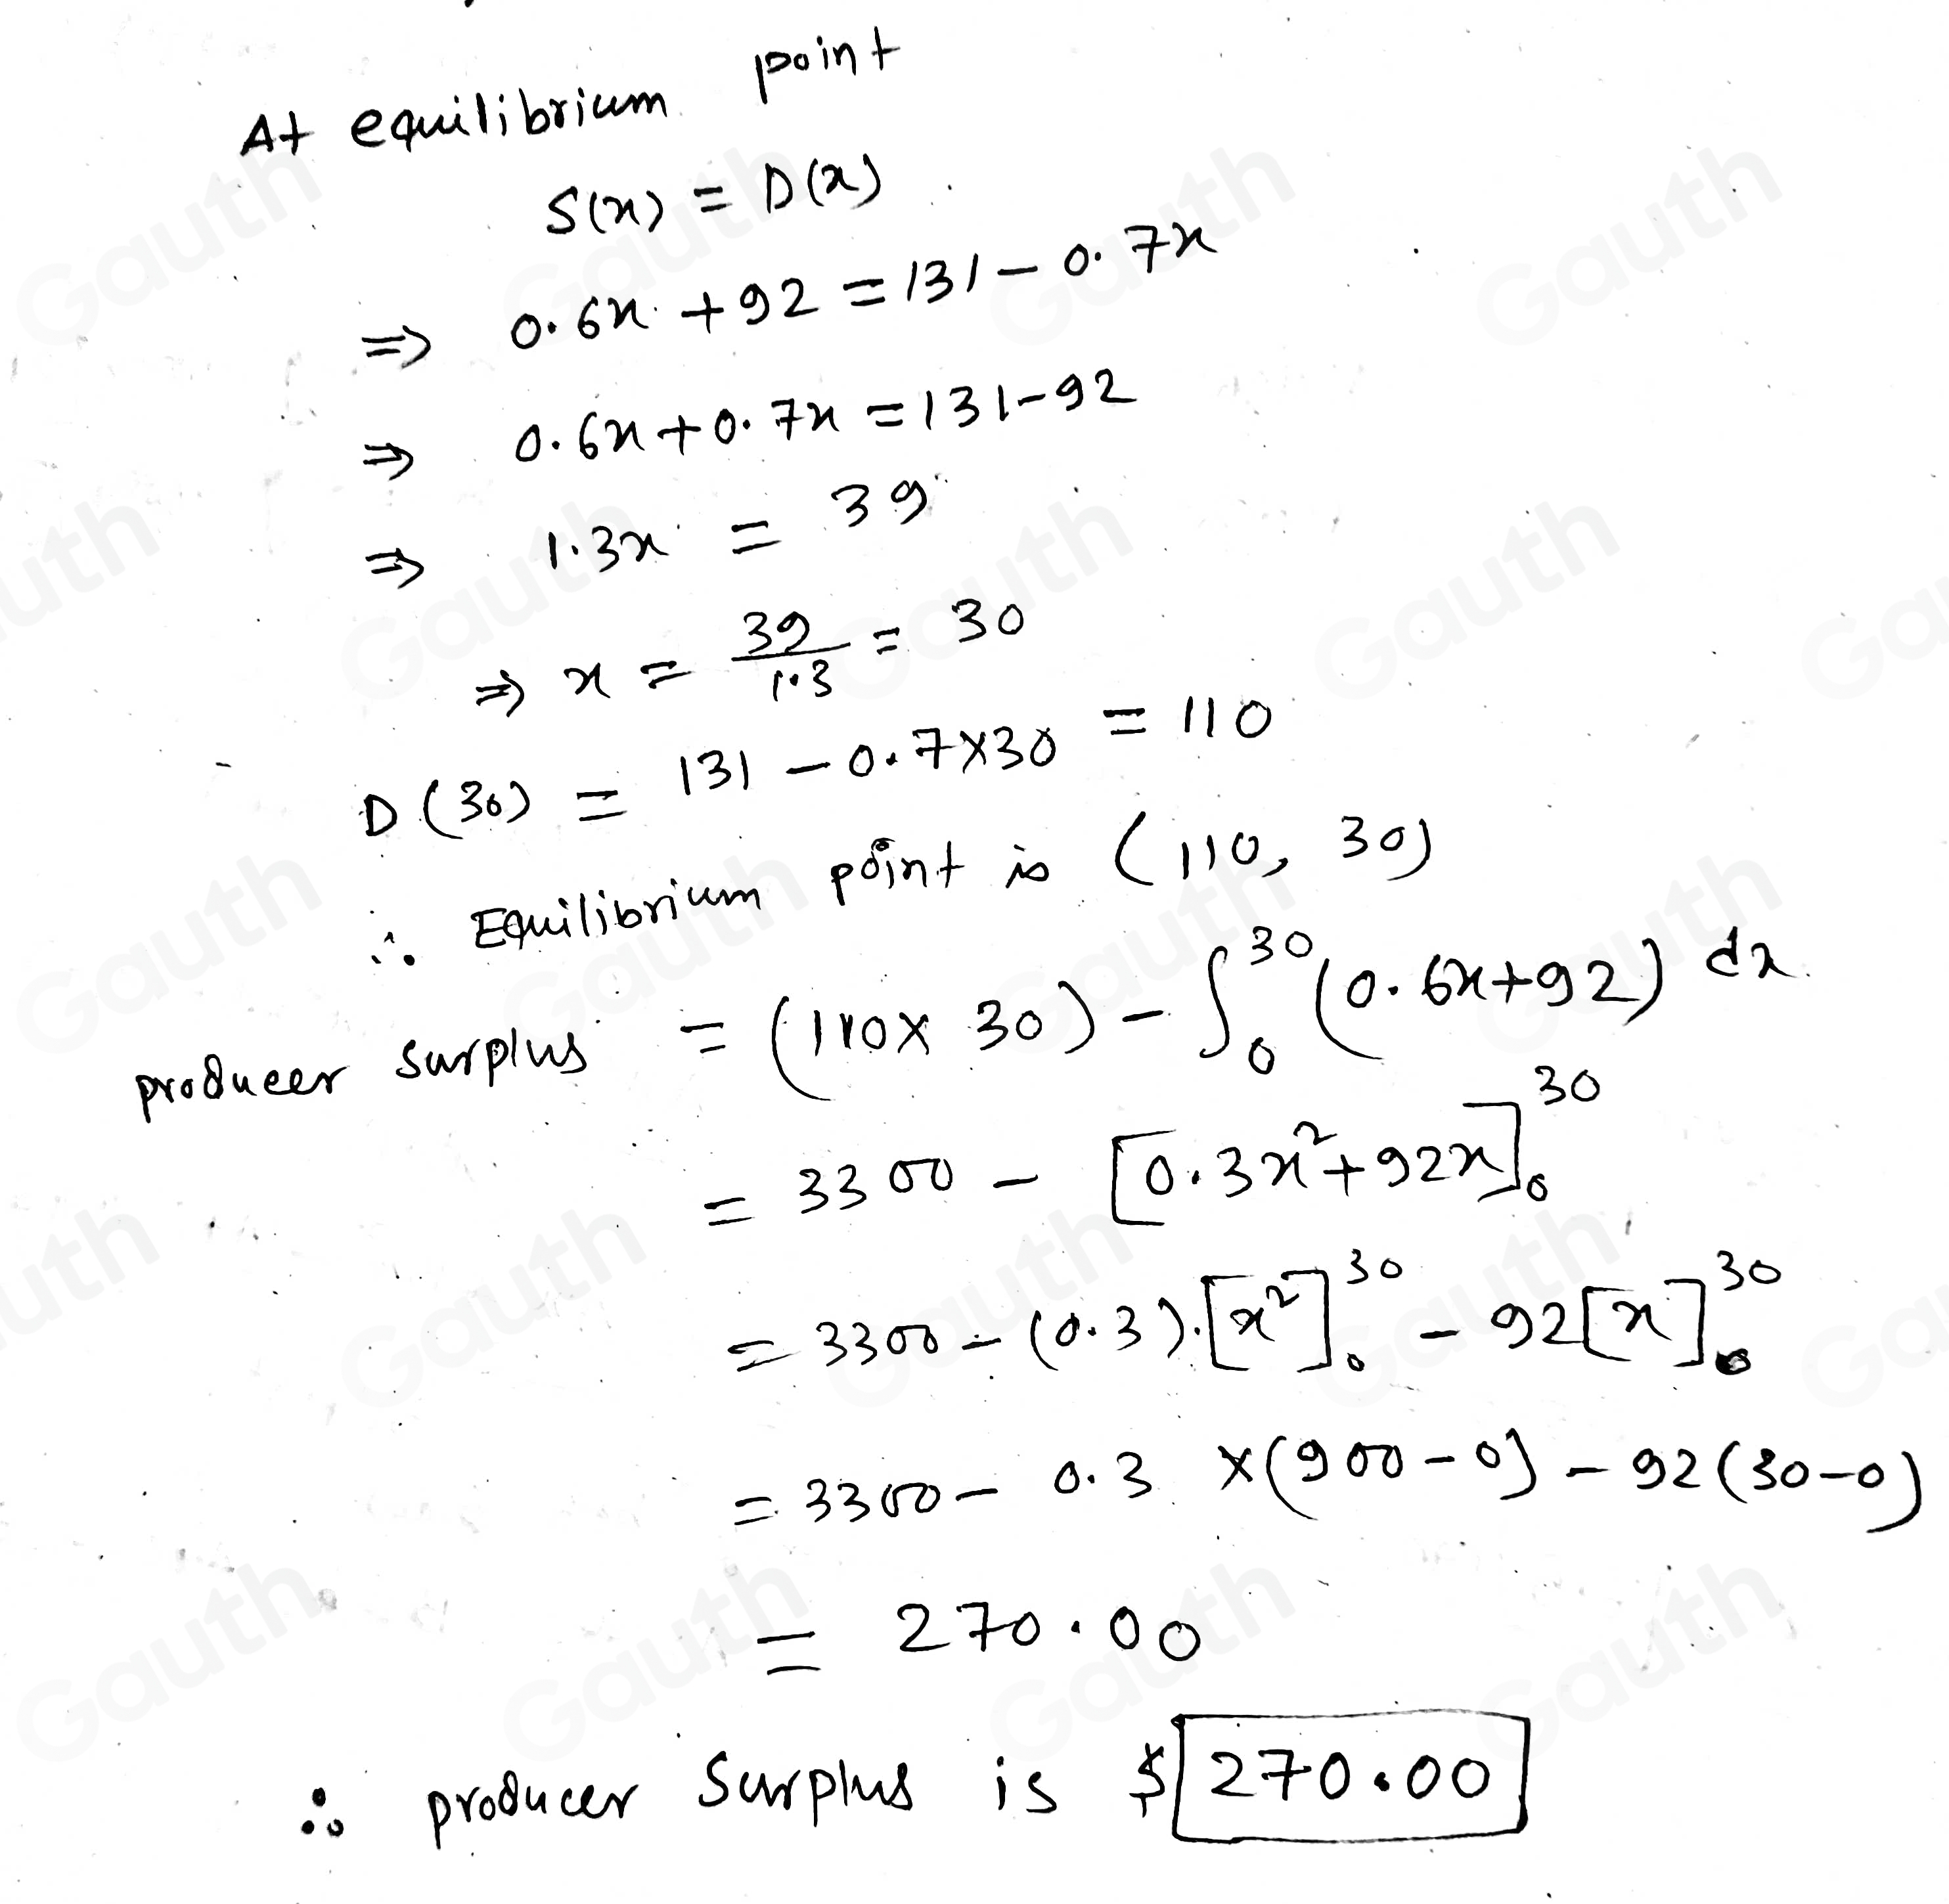 At equilibrium point
S(x) = D(x)
⇒ 0.6x + 92 = 131 - 0.7x
⇒ 0.6x + 0.7x = 131 - 92
⇒ 1.3x = 39
⇒ x = 39/1.3 = 30
D(30) = 131 - 0.7×30 = 110
∴ Equilibrium point is (110, 30)
producer surplus = (110 × 30) - ∫₀³⁰ (0.6x+92) dx
= 3300 - [0.3x²+92x]₀³⁰
= 3300 - (0.3).[x²]₀³⁰ - 92[x]₀³⁰
= 3300 - 0.3 ×(900-0) - 92(30-0)
= 270.00
∴ producer Surplus is $ 270.00
Gauth